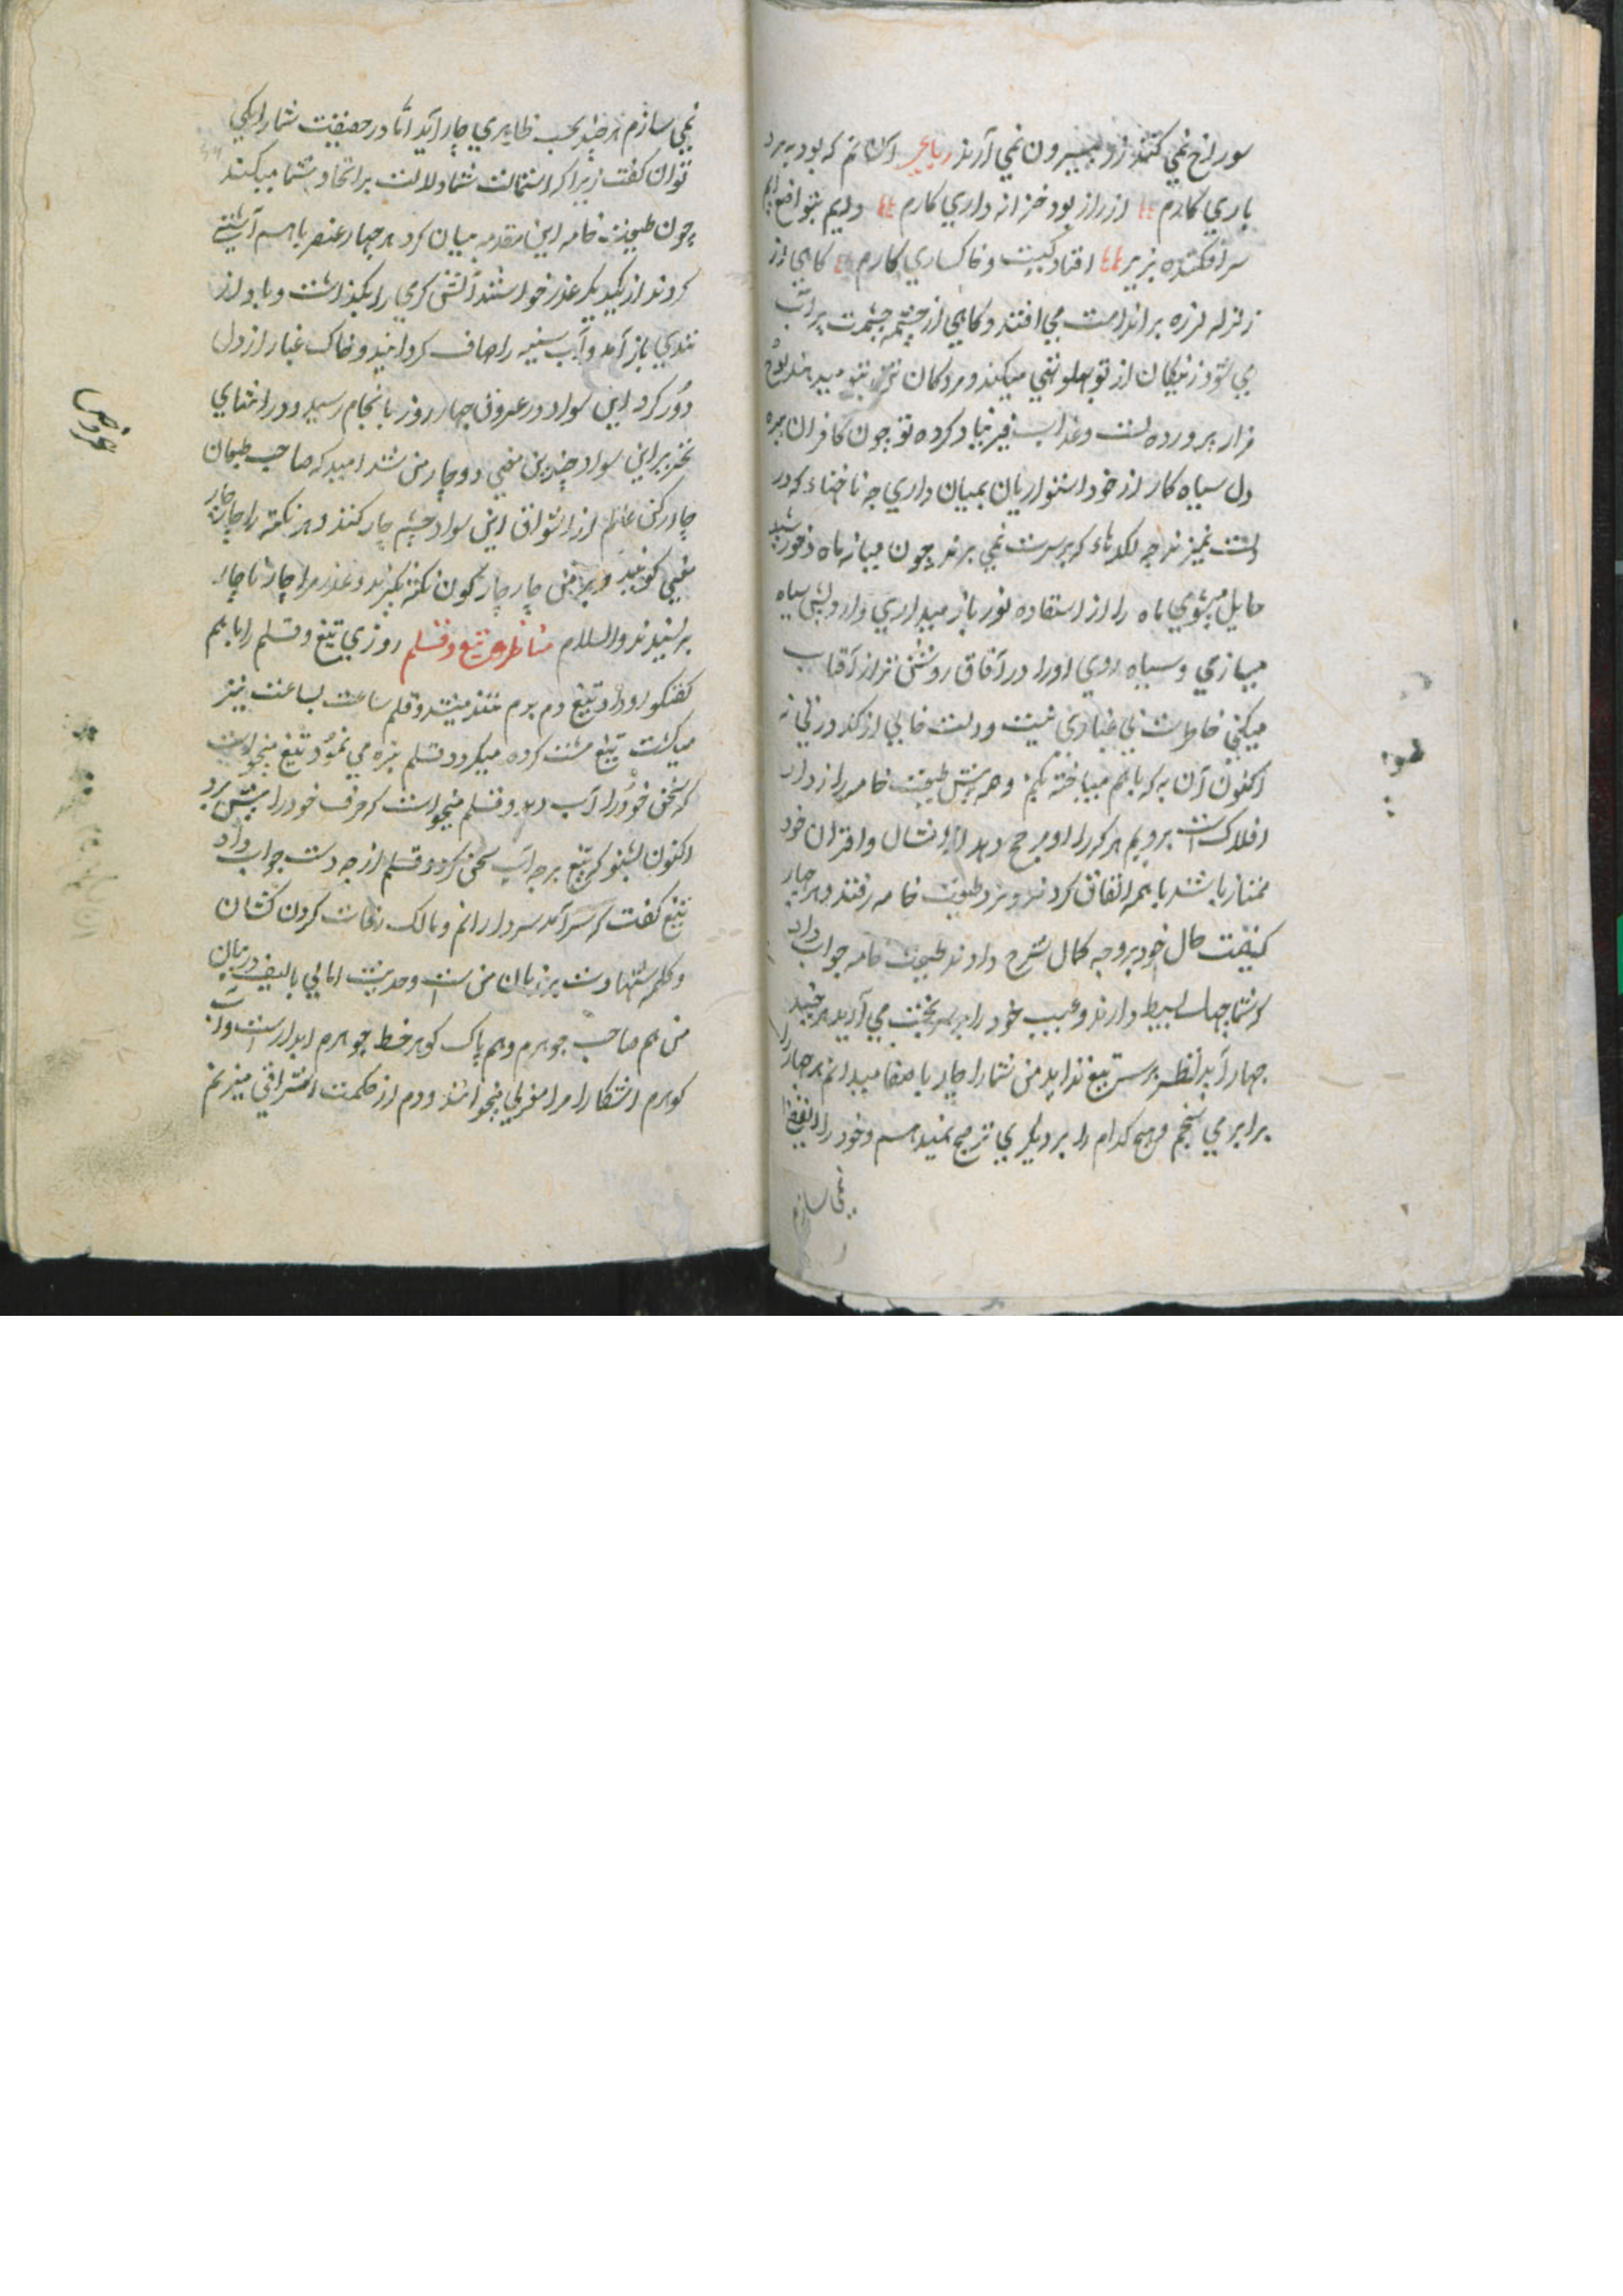 سوراخ نمی کنند زر بیرون نمی آرند رباعی آنم که بود به برد
باری کارم از راز بود خزانه داری کارم دایم بتواضع ام
سر افکنده بزیر افتادگیست و خاکساری کارم کاهی از
زلزله لرزه براندامت می افتد و کاهی از چشمه چشمت پر آب
می شود زندکان از تو پهلو تهی میکنند و مردکان تن بتو میدهند
قرار برورده تست و عذاب قبر بنیاد کرده تو چون کافران تیره
دل سیاه کار از خود استواریان بمیان داری چه ناخنهاء که در
دلت نمیزند چه لکدهاء که برسرت نمی برند چون میانه ماه و خورشید
حایل میشوی ماه را از استفاده نور باز میداری و او را بیش سیاه
میسازی و سیاه روی او را در آفاق روشن تر از آفتاب
میکنی خاطرت بی غباری نیست و دلت خالی از کدورتی نه
اکنون آن به که باهم مباحثه نکنیم و همه پیش طبیعت خامه راز دار
افلاکست برویم هر کرا او مرجح دهد از امثال و اقران خود
ممتاز باشد باهمه اتفاق کردند و نزد طبیعت خامه رفتند و هر چار
کیفیت حال خود بر وجه کمال شرح دادند طبیعت خامه جواب داد
که شما جهل بسیط دارند و عیب خود را بر سر بحث می آرید هر چند
چهار آید لفظ برستیغ نداید من شمارا چار با صفا میدانم هر چهار را
برابر می سنجم و هیچ کدام را بر دیکری ترجیح نمیدهم و خود را
نمی سازم
نمی سازم هر چند بحسب ظاهری چار آید اما در حقیقت شمارا یکی
توان کفت زیرا که استمالت شما دلالت بر اتحاد شما میکند
چون طبیعت خامه این مقدمه بیان کرد هر چهار عنصر باهم آشتی
کردند از یکدیکر عذر خواستند آتش کرمی را بکذاشت و باد از
تندی باز آمد و آب سینه را صاف کردانید و خاک غبار از دل
دور کرد این سواد در عرض چهار روز بانجام رسید و در اثنای
تحریر این سواد چندین معنی دو چار من شد امید که صاحب طبعان
چار رکن عالم از اشراق این سواد چشم چار کنند و هر نکته را چار چار
معنی کویند و بر من چار چار کون نکته نکیرند و عذر مرا چار ناچار
بر پذیرند والسلام مناظره تیغ و قلم روزی تیغ و قلم را باهم
کفتکو رو داد تیغ دم بدم تند میشد و قلم ساعت بساعت تیز
میکشت تیغ مشت کرده میکرد و قلم نیزه می نمود تیغ میخواست
که سخن خود را آب دهد و قلم میخواست که حرف خود را پیش برد
اکنون بشنو که تیغ بر چه آب سخن کرد و قلم از چه دست جواب داد
تیغ کفت که سرآمد سردارانم و مالک رقاب کردن کشان
و کلمه شهادت بر زبان من ست و حدیث امالی بالسیف در بیان
من هم صاحب جوهرم و هم پاک کوهر خط جوهرم ابدارست و آب
کوهرم اشکارا مرا مغربی میخوانند و دم از حکمت اشراقی میزنم
هوا
عروض